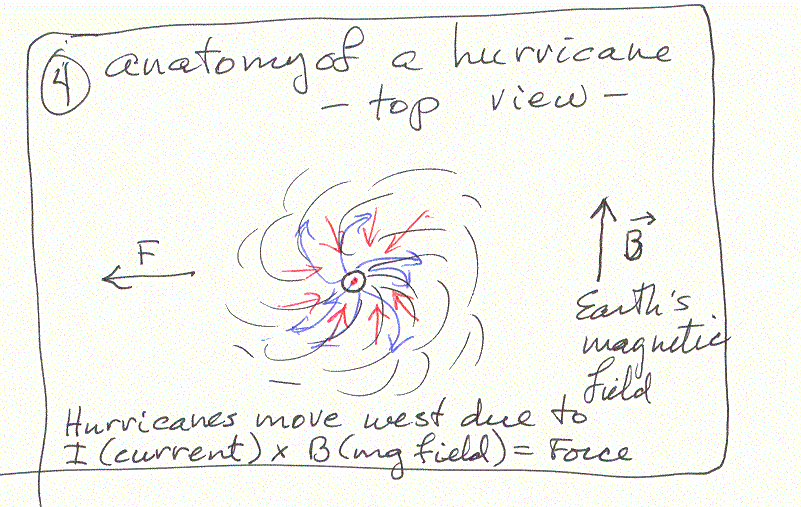 4 anatomy of a hurricane
- top view -
F
B
Earth's
magnetic
field
Hurricanes move west due to
I (current) x B (mg field) = Force